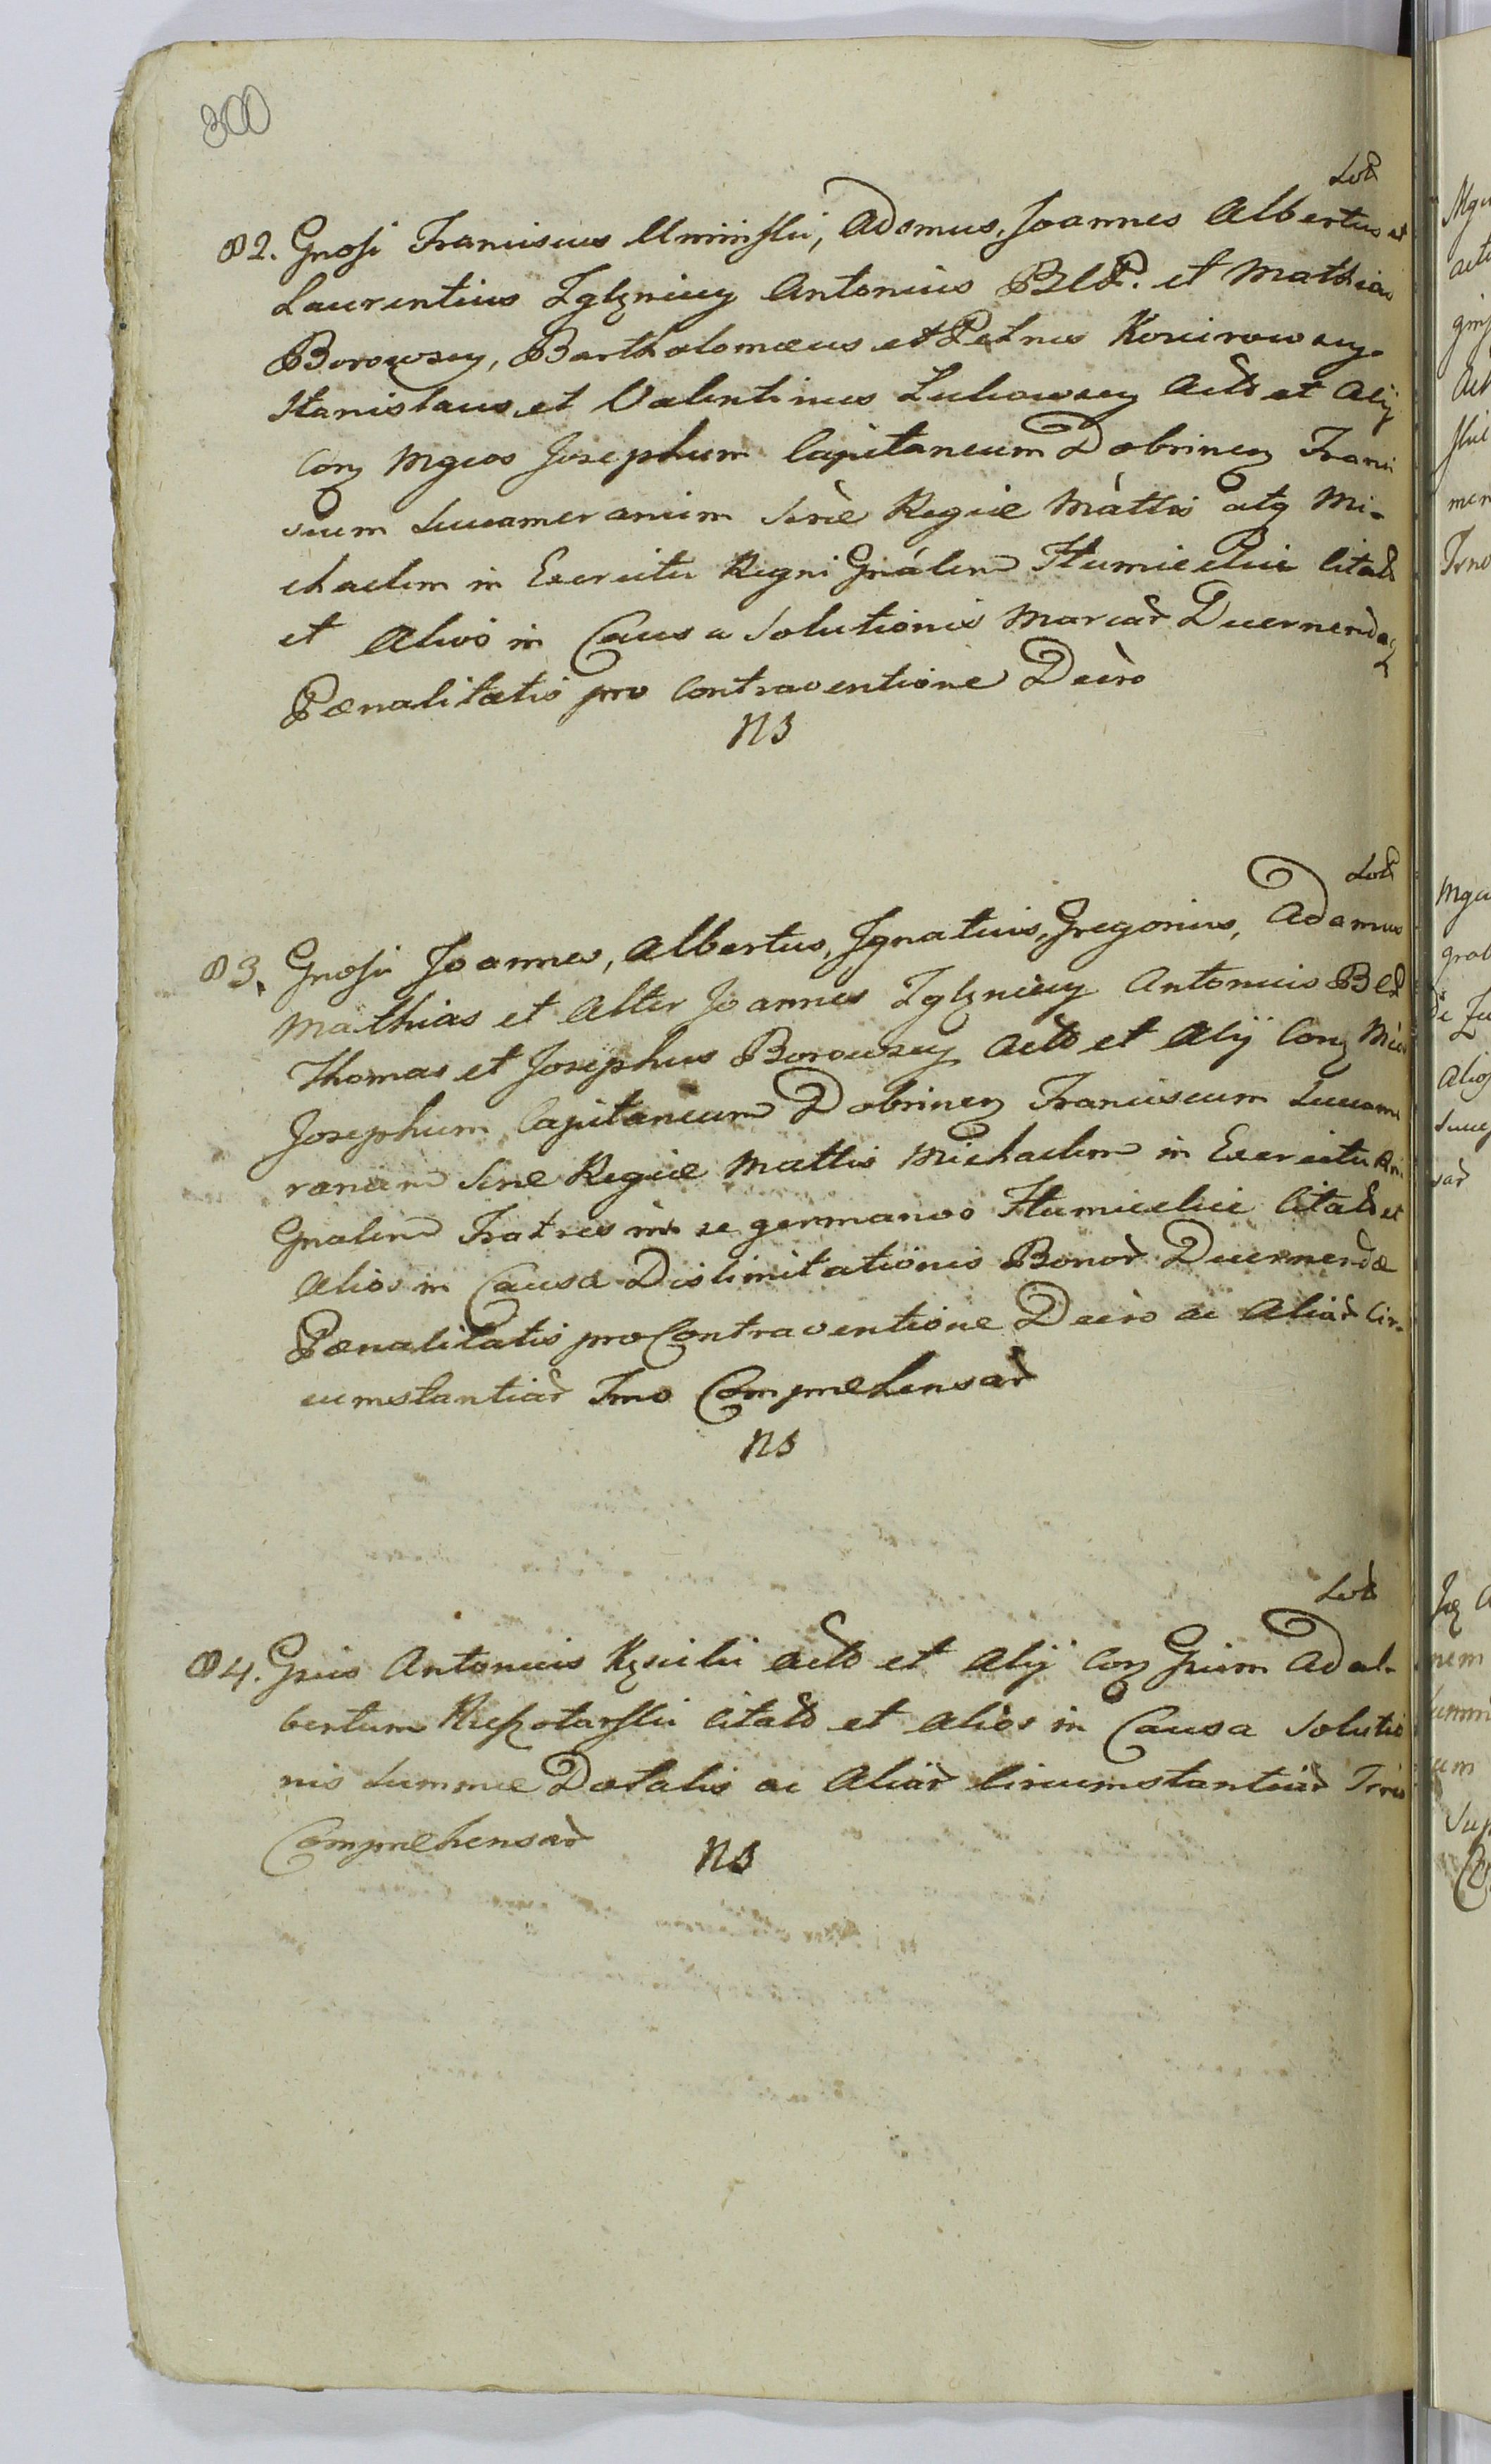 300
Lods
82. Gnosi Franciscus Uminski, Adamus, Joannes Albertus et
Laurentius Zglęniccy Antonius BłP. et Mathias
Borowscy, Bartholomæus et Petrus Kosirowscy
Stanislaus et Valentinus Lukowscy Acto et Alij
Con Mgcos Josephum Capitaneum Dobrinen Franci
scum Succamerarium Sræ Regiæ Mattis atq Mi-
chaelem in Exercitu Regni Gnálem Humiecki Citatos
et Alios in Causa Solutionis Marcar Duernendæ
Pænalitatis pro Contraventione Decro
NS
Lods
83. Gnosi Joannes, Albertus, Ignatius, Gregorius, Adamus
Mathias et Alter Joannes Zglęniccy Antonius Bł
Thomas et Josephus Borowscy Acto et Alij Con
Josephum Capitaneum Dobrinen Franciscum Succame
rarium Sræ Regiæ Mattis Michaelem in Exercitu Rni
Gnalem Fratres int se germanos Humieckie Citatos et
Alios in Causa Dislimitationis Bonor Duernendæ
Pænalitatis pro Contraventione Decro ac Aliar Cir-
cumstantiar Tmo Compræhensar
NS
Lods
84. Gnus Antonius Kęsicki Acto et Alij Con Gnum Adal-
bertum Kiełzotarski Citato et Alios in Causa Solutio
nis Summæ Dotalis ac Aliar Circumstantiar Tmo
Compræhensar
NS